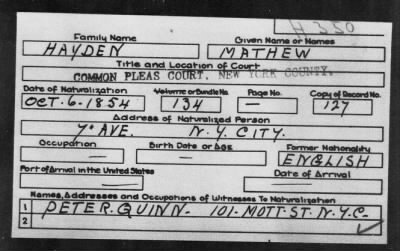 H 350
Family Name Given Name or Names
HAYDEN MATHEW
Title and Location of Court
COMMON PLEAS COURT, NEW YORK COUNTY.
Date of Naturalization Volume or Bundle No. Page No. Copy of Record No.
OCT. 6-1854 134 — 127
Address of Naturalized Person
7" AVE. N.Y. CITY.
Occupation Birth Date or Age Former Nationality
— — ENGLISH
Port of Arrival in the United States Date of Arrival
— —
Names, Addresses and Occupations of Witnesses To Naturalization
1 PETER. QUINN- 101- MOTT. ST. N.Y.C-
2